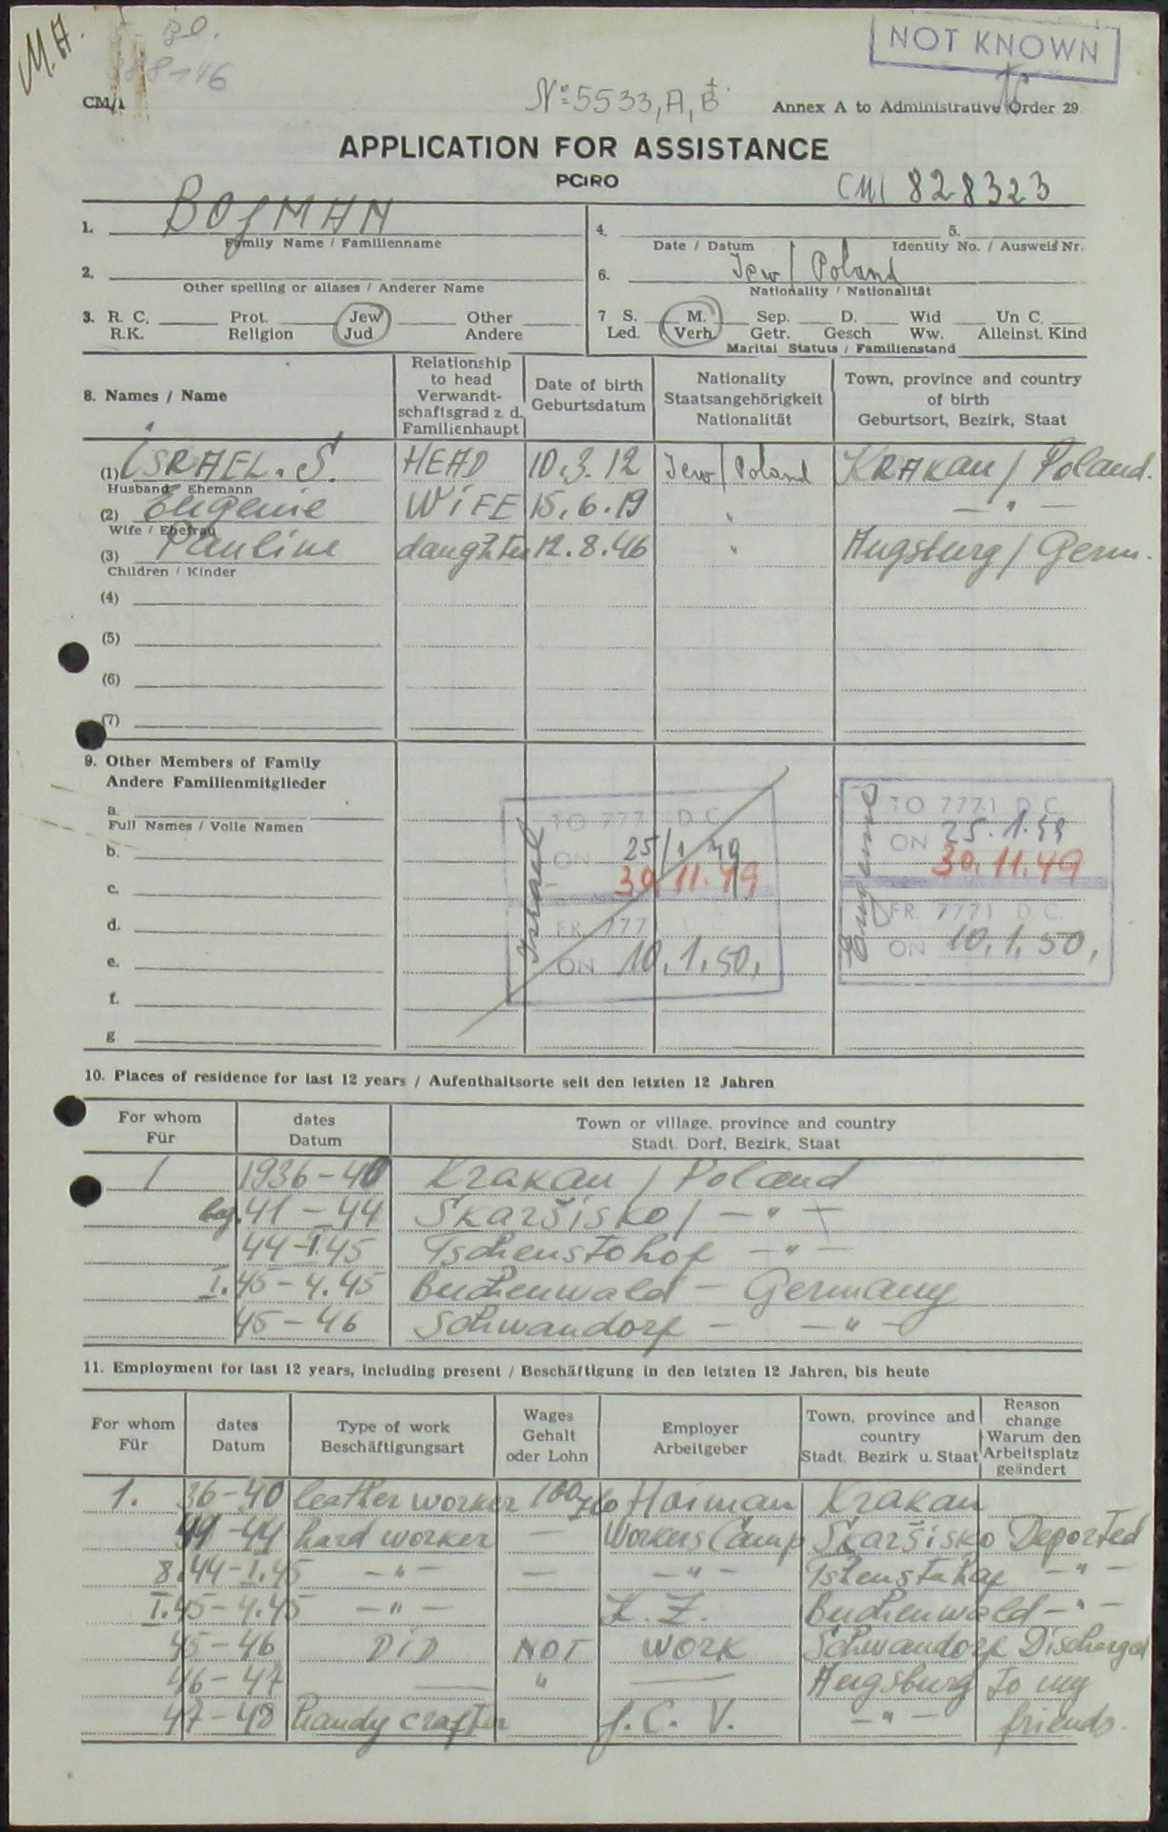 M.A.
NOT KNOWN
CM/1
Nº 5533, A, B
Annex A to Administrative Order 29
APPLICATION FOR ASSISTANCE
PCIRO
CM1 828323
1. BOJMAN
Family Name / Familienname
4.
Date / Datum
5.
Identity No. / Ausweis Nr.
2.
Other spelling or aliases / Anderer Name
6. Jew / Poland
Nationality / Nationalität
3. R. C. Prot. Jew Other
R.K. Religion Jud Andere
7 S. M. Sep. D. Wid Un C.
Led. Verh. Getr. Gesch Ww. Alleinst. Kind
Marital Statuts / Familienstand
8. Names / Name
Relationship to head Verwandt-schaftsgrad z. d. Familienhaupt
Date of birth Geburtsdatum
Nationality Staatsangehörigkeit Nationalität
Town, province and country of birth Geburtsort, Bezirk, Staat
(1) ISRAEL. S. HEAD 10.3.12 Jew / Poland KRAKau / Poland.
Husband Ehemann
(2) Eugenie WiFE 15.6.19 " — " —
Wife / Ehefrau
(3) Pauline daughter 12.8.46 " Augsburg / Germ.
Children / Kinder
(4)
(5)
(6)
(7)
9. Other Members of Family
Andere Familienmitglieder
a.
Full Names / Volle Namen
b.
c.
d.
e.
f.
g
Israel
TO 777 D C
ON 25/1 49
30.11.49
FR. 777
ON 10.1.50.
Eugenie
TO 7771 D C
ON 25.1.49
30.11.49
FR. 7771 D C.
ON 10.1.50.
10. Places of residence for last 12 years / Aufenthaltsorte seit den letzten 12 Jahren
For whom Für
dates Datum
Town or village, province and country Stadt. Dorf, Bezirk, Staat
1 1936-40 Krakau / Poland
beg. 41 - 44 Skaršisko / — " —
44-I.45 Tschenstohof — " —
I.45-4.45 Buchenwald - Germany
45-46 Schwandorf - — " —
11. Employment for last 12 years, including present / Beschäftigung in den letzten 12 Jahren, bis heute
For whom Für
dates Datum
Type of work Beschäftigungsart
Wages Gehalt oder Lohn
Employer Arbeitgeber
Town, province and country Stadt. Bezirk u. Staat
Reason change Warum den Arbeitsplatz geändert
1. 36-40 leather worker Hoiman Krakau
41-44 hard worker — Workers Camp Skaršisko Deported
8.44-I.45 — " — — — " — Tshenstahof — " —
I.45-4.45 — " — K. Z. Buchenwald — " —
45-46 DiD NOT WORK Schwandorf Discharged
46-47 — " — Augsburg to my
47-48 handy crafter J. C. V. — " — friends.